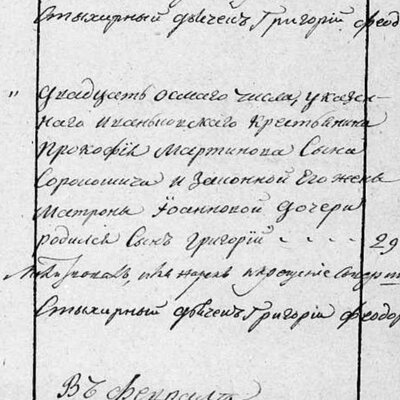 Стыхирный дьячекъ Григорій Феод
" двадцать осмаго числа, указан-
наго крестьянина
Прокофія Мартинова Сына
и Законной Его жены
Матроны Іоанновой дочери
родился Сынъ Григорій - - - - 29
Стыхирный дьячекъ Григорій Феодор
Въ Февралѣ